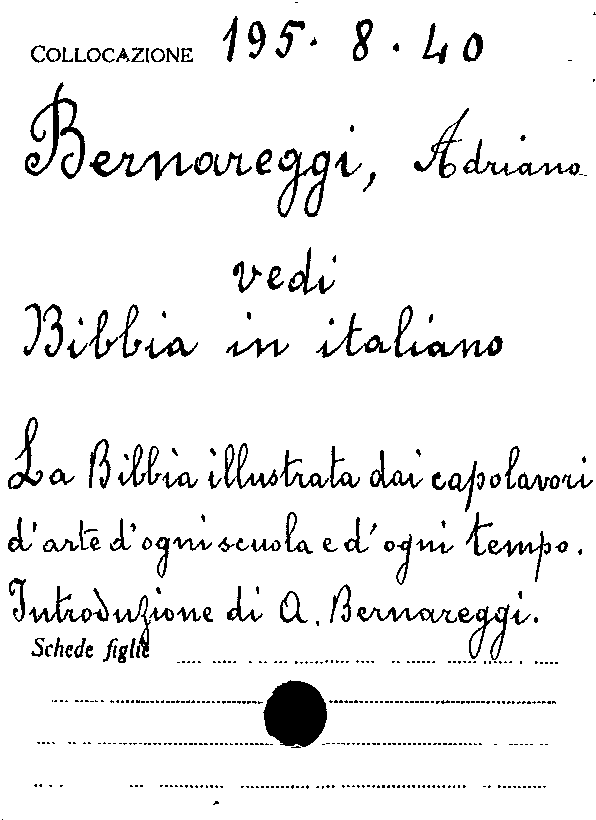 COLLOCAZIONE 195. 8. 40
Bernareggi, Adriano
vedi
Bibbia in italiano
La Bibbia illustrata dai capolavori
d'arte d'ogni scuola e d'ogni tempo.
Introduzione di A. Bernareggi.
Schede figlie